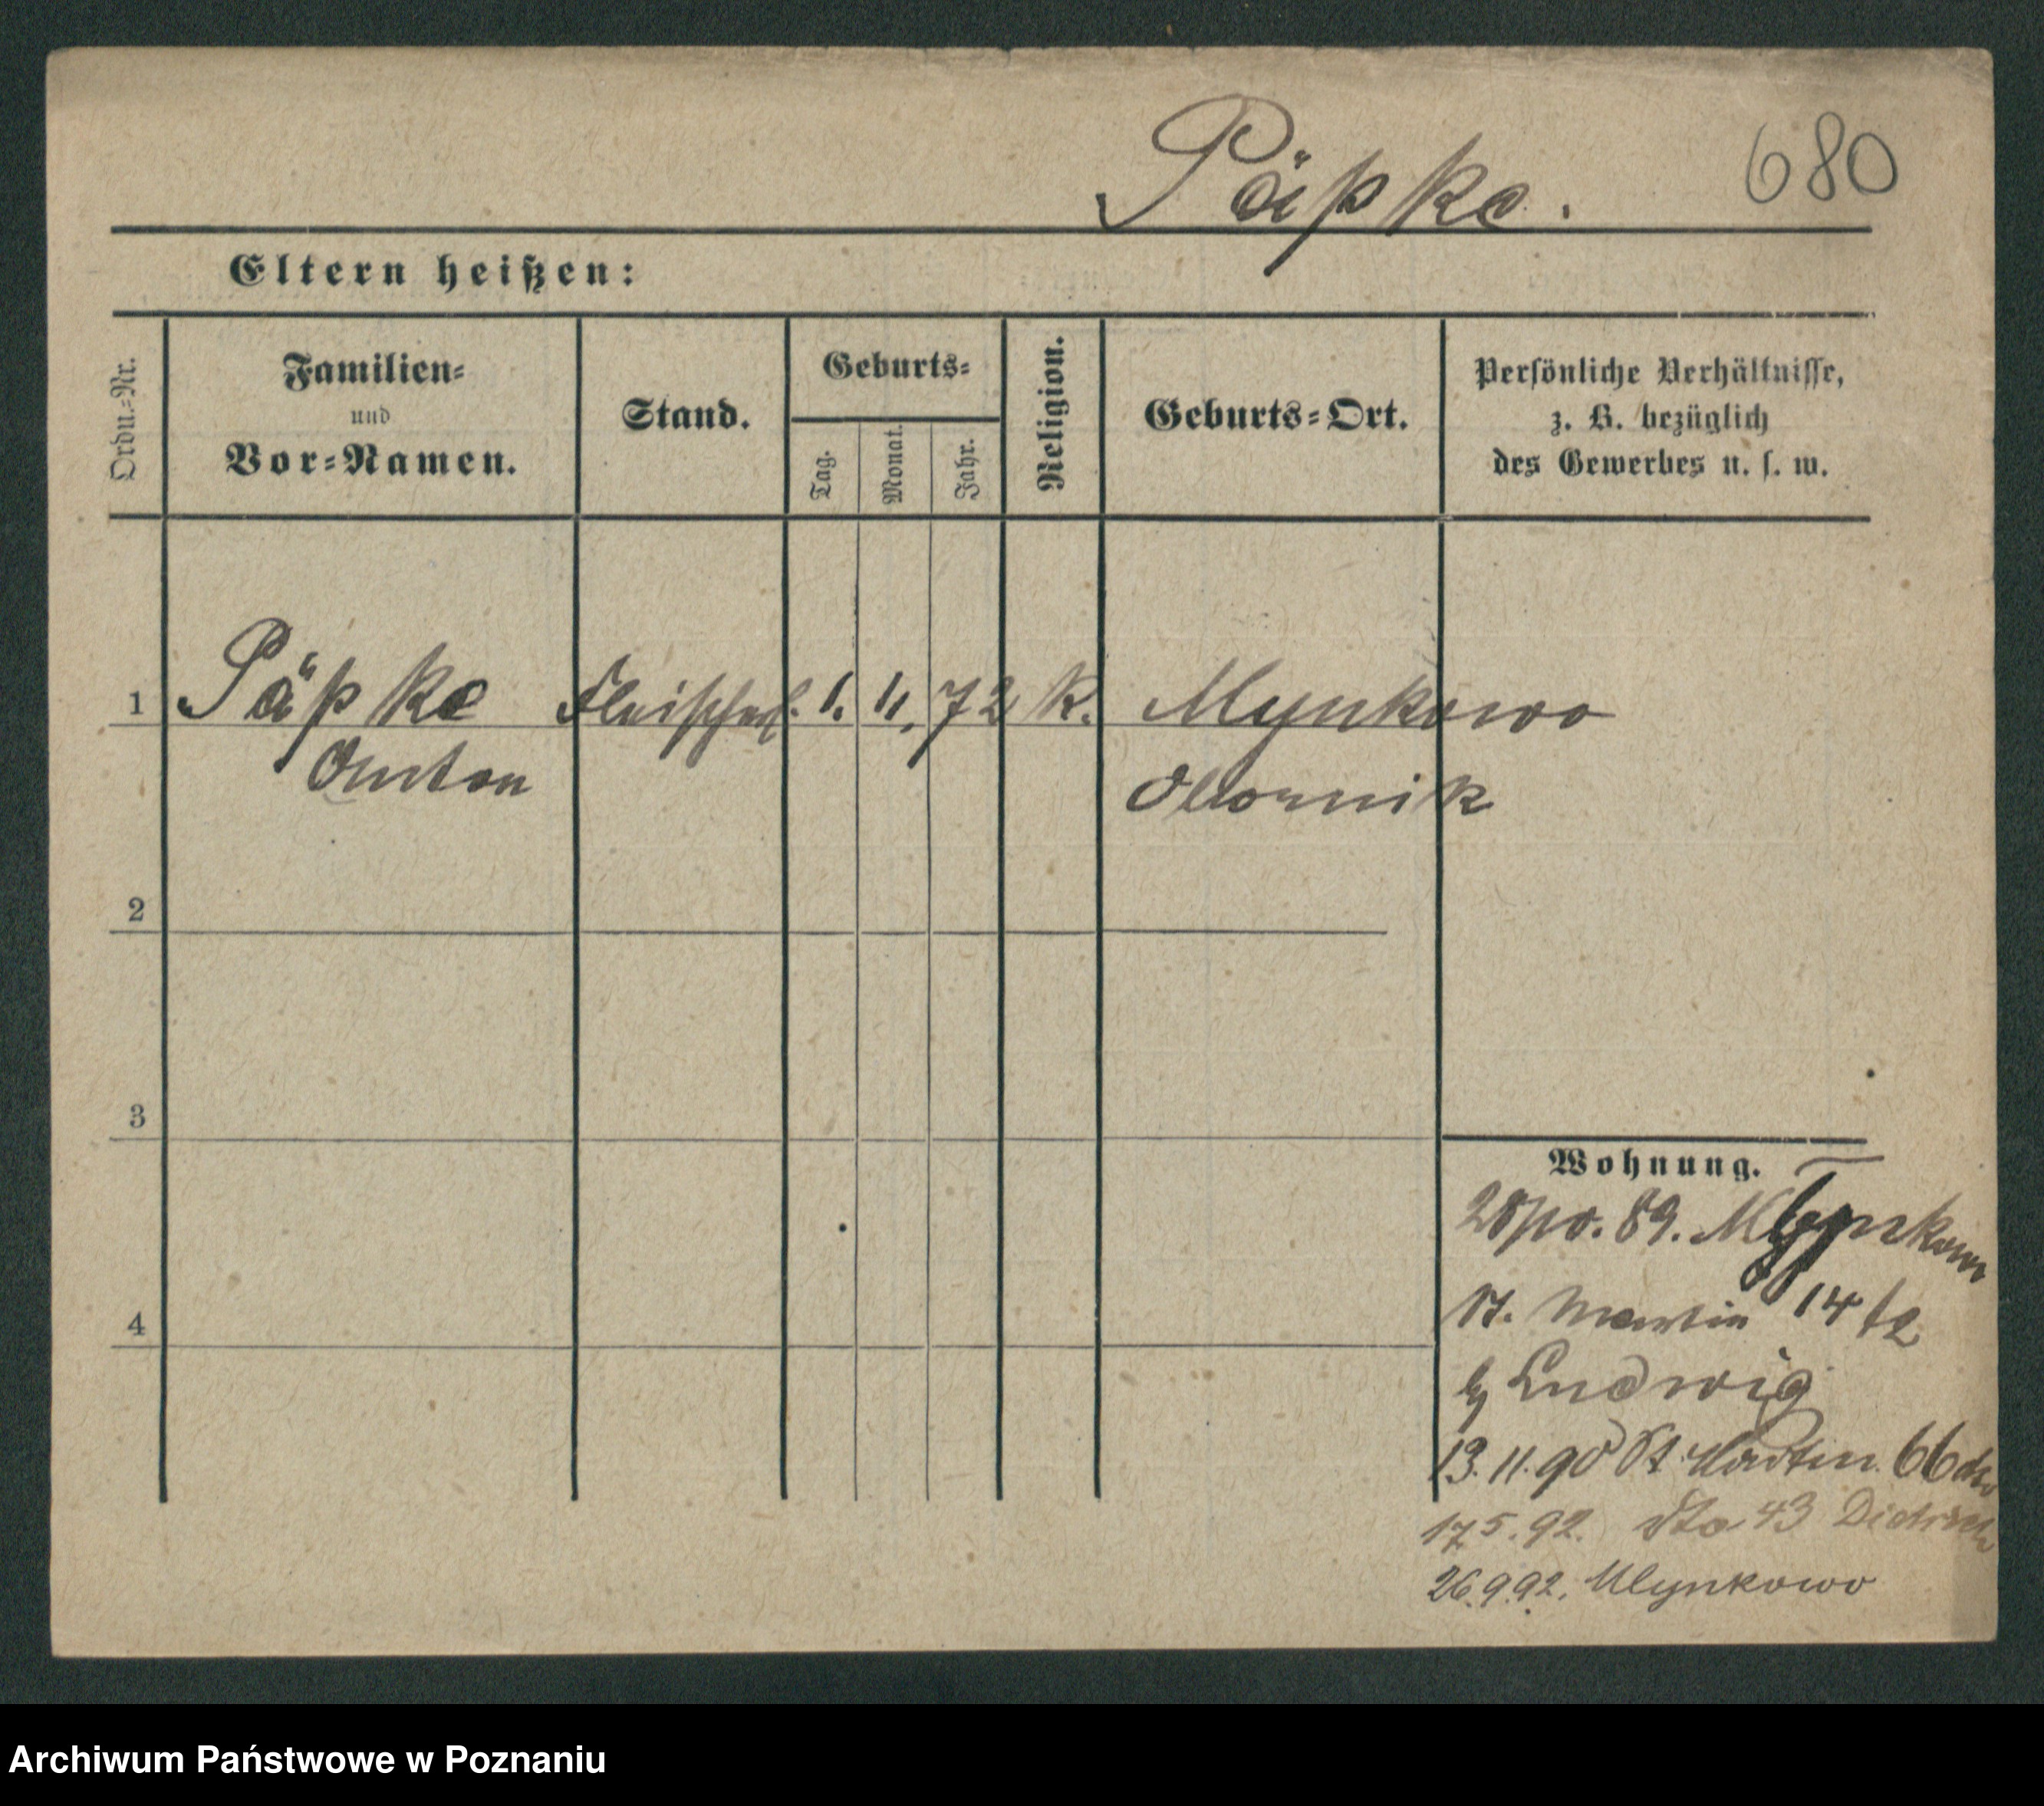 Päpke.
680
Eltern heißen:
Ordn.-Nr.
Familien-
und
Vor-Namen.
Stand.
Geburts-
Tag.
Monat.
Jahr.
Religion.
Geburts-Ort.
Persönliche Verhältnisse,
z. B. bezüglich
des Gewerbes u. s. w.
1 Päpke 1. 11. 72 K. Mlynkowo
Anton Obornik
2
3
4
Wohnung.
89. Mlynkowo
St. Martin 14
Ludwig
13.11.90 St. Martin 66
17.5.92. 43
26.9.92. Mlynkowo
Archiwum Państwowe w Poznaniu